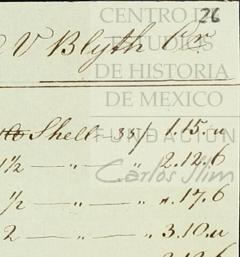 26
V Blyth Cr.
CENTRO DE
ESTUDIOS
DE HISTORIA
DE MEXICO
FUNDACIÓN
Carlos Slim
Shell - 35/ 1.15.u
1½ — " — " 2.12.6
½ — " — " ".17.6
2 — " — " 3.10.u
2.12.6